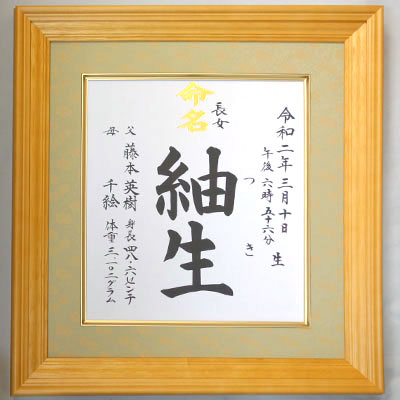 令和二年三月十日
午後六時五十六分 生
長女
命名
紬生
つき
父 藤本英樹 身長四八・六センチ
母 千絵 体重三、一〇二グラム